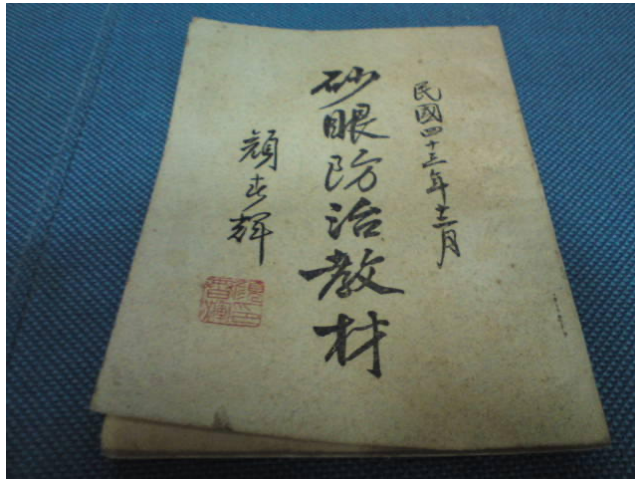 民國四十三年十二月
砂眼防治教材
顏春輝
顏春輝印